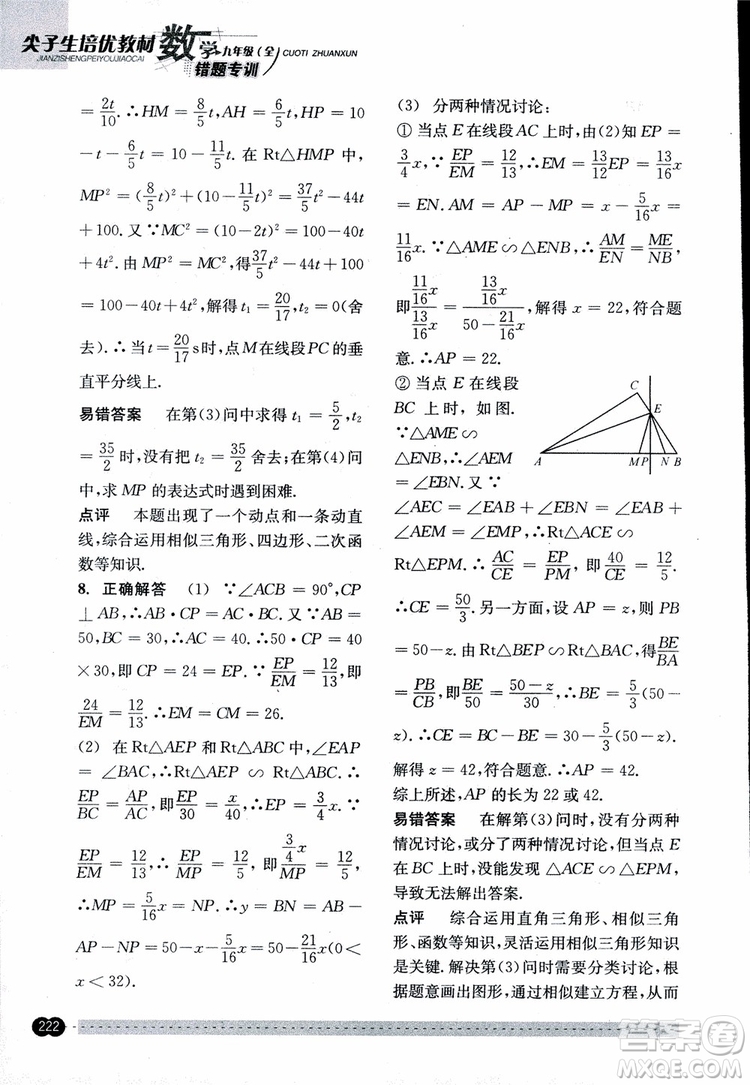 尖子生培优教材 数学 九年级(全) CUOTI ZHUANXUN
JIANZISHENGPEIYOUJIAOCAI 错题专训
= 2t/10. ∴HM = 8/5 t, AH = 6/5 t, HP = 10
- t - 6/5 t = 10 - 11/5 t. 在 Rt△HMP 中,
MP² = (8/5 t)² + (10 - 11/5 t)² = 37/5 t² - 44t
+ 100. 又 ∵MC² = (10-2t)² = 100-40t
+ 4t². 由 MP² = MC², 得 37/5 t² - 44t + 100
= 100-40t+4t², 解得 t₁ = 20/17, t₂ = 0(舍
去). ∴ 当 t = 20/17 s时, 点 M 在线段 PC 的垂
直平分线上.
易错答案 在第(3)问中求得 t₁ = 5/2, t₂
= 35/2 时, 没有把 t₂ = 35/2 舍去; 在第(4)问
中, 求 MP 的表达式时遇到困难.
点评 本题出现了一个动点和一条动直
线, 综合运用相似三角形、四边形、二次函
数等知识.
8. 正确解答 (1) ∵∠ACB = 90°, CP
⊥AB, ∴AB·CP = AC·BC. ∵AB =
50, BC = 30, ∴AC = 40. ∴50·CP = 40
×30, 即 CP = 24 = EP. ∵ EP/EM = 12/13, 即
24/EM = 12/13, ∴EM = CM = 26.
(2) 在 Rt△AEP 和 Rt△ABC 中, ∠EAP
= ∠BAC, ∴Rt△AEP ∽ Rt△ABC. ∴
EP/BC = AP/AC, 即 EP/30 = x/40, ∴EP = 3/4 x. ∵
EP/EM = 12/13, ∴ EP/MP = 12/5, 即 (3/4 x)/MP = 12/5,
∴MP = 5/16 x = NP. ∴y = BN = AB -
AP - NP = 50 - x - 5/16 x = 50 - 21/16 x(0<
x < 32).
(3) 分两种情况讨论:
① 当点 E 在线段 AC 上时, 由(2)知 EP =
3/4 x. ∵ EP/EM = 12/13, ∴EM = 13/12 EP = 13/16 x
= EN. AM = AP - MP = x - 5/16 x =
11/16 x. ∵△AME ∽ △ENB, ∴ AM/EN = ME/NB,
即 (11/16 x)/(13/16 x) = (13/16 x)/(50 - 21/16 x), 解得 x = 22, 符合题
意. ∴AP = 22.
② 当点 E 在线段
BC 上时, 如图.
∵△AME ∽
△ENB, ∴∠AEM
= ∠EBN. 又 ∵
C
E
A M P N B
∠AEC = ∠EAB + ∠EBN = ∠EAB +
∠AEM = ∠EMP, ∴Rt△ACE ∽
Rt△EPM. ∴ AC/CE = EP/PM, 即 40/CE = 12/5.
∴CE = 50/3. 另一方面, 设 AP = z, 则 PB
= 50-z. 由 Rt△BEP∽Rt△BAC, 得 BE/BA
= PB/CB, 即 BE/50 = (50-z)/30, ∴BE = 5/3(50-
z). ∴CE = BC - BE = 30 - 5/3(50-z).
解得 z = 42, 符合题意. ∴AP = 42.
综上所述, AP 的长为 22 或 42.
易错答案 在解第(3)问时, 没有分两种
情况讨论, 或分了两种情况讨论, 但当点 E
在 BC 上时, 没能发现 △ACE ∽△EPM,
导致无法解出答案.
点评 综合运用直角三角形、相似三角
形、函数等知识, 灵活运用相似三角形知识
是关键. 解决第(3)问时需要分类讨论, 根
据题意画出图形, 通过相似建立方程, 从而
222
答案卷
MXQE.COM